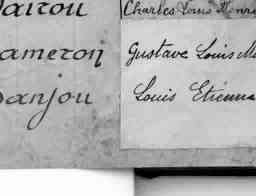 Charles Louis Henri
Cameron Gustave Louis M
Danjou Louis Etienne